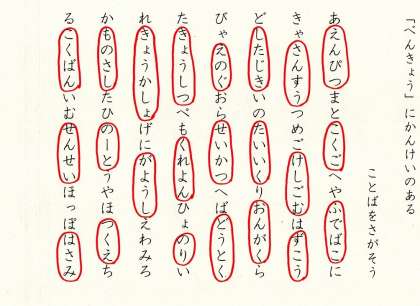 「べんきょう」にかんけいのある
ことばをさがそう
あえんぴつまとこくごへやふでばこに
きゃさんすうつめごけしごむはずこう
どしたじきいのたいいくりおんがくら
びゃえのぐおらせいかつへばどうとく
たきょうしつぺもくれよんひょのりい
れきょうかしょげにがようしえわみろ
かものさしたひのーとうやほつくえち
るこくばんいむせんせいほっぽはさみ